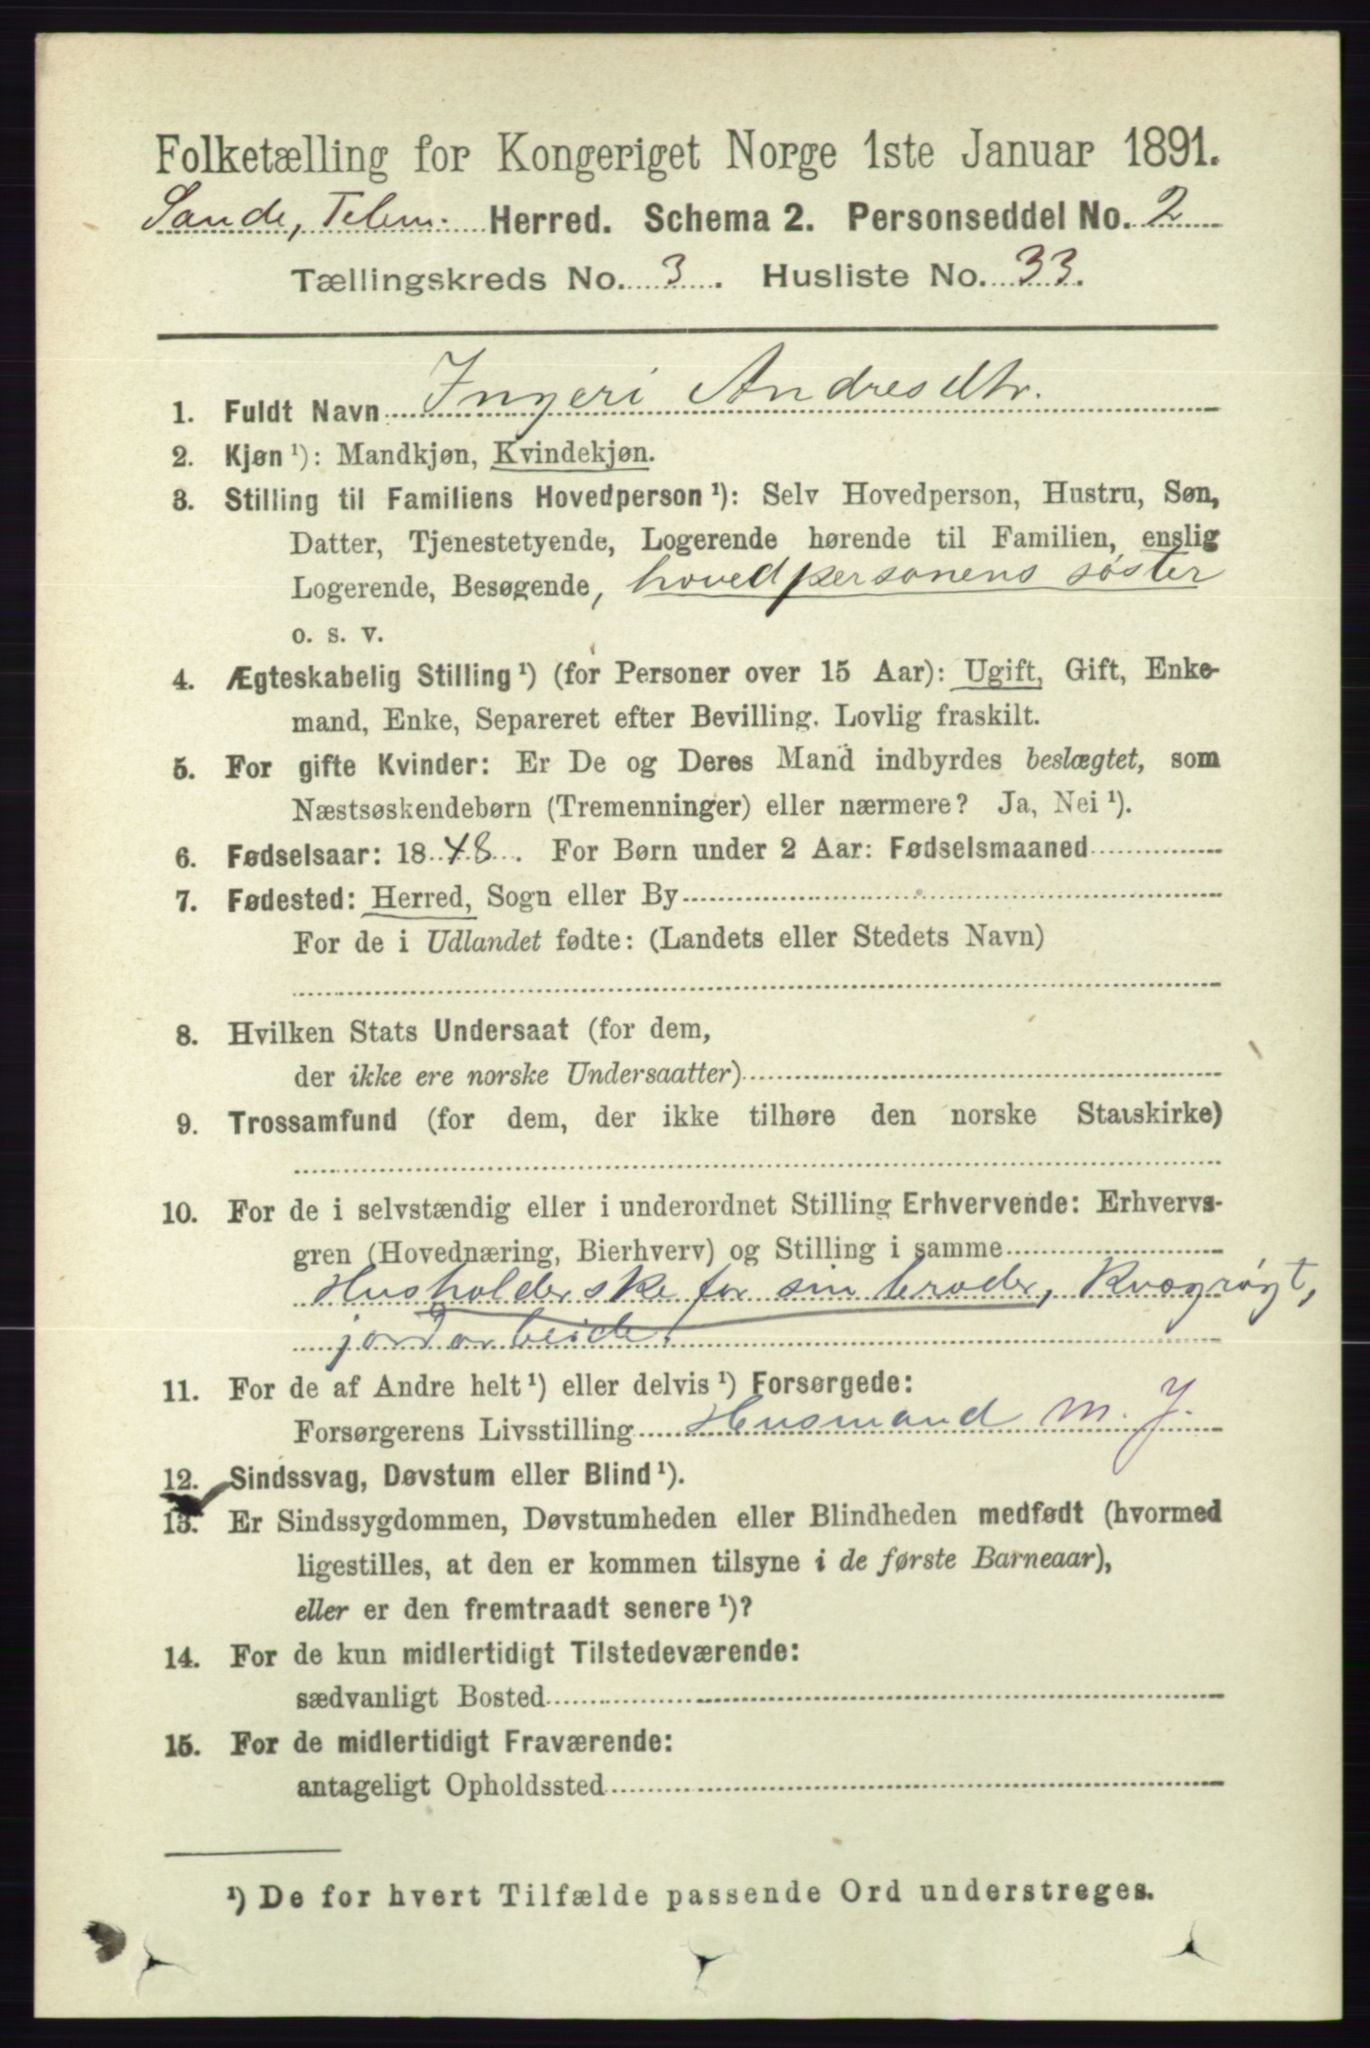 Folketælling for Kongeriget Norge 1ste Januar 1891.
Sande, Telem. Herred. Schema 2. Personseddel No. 2
Tællingskreds No. 3. Husliste No. 33.
1. Fuldt Navn Ingeri Andresdtr.
2. Kjøn ¹): Mandkjøn, Kvindekjøn.
3. Stilling til Familiens Hovedperson ¹): Selv Hovedperson, Hustru, Søn,
Datter, Tjenestetyende, Logerende hørende til Familien, enslig
Logerende, Besøgende, hovedpersonens søster
o. s. v.
4. Ægteskabelig Stilling ¹) (for Personer over 15 Aar): Ugift, Gift, Enke-
mand, Enke, Separeret efter Bevilling. Lovlig fraskilt.
5. For gifte Kvinder: Er De og Deres Mand indbyrdes beslægtet, som
Næstsøskendebørn (Tremenninger) eller nærmere? Ja, Nei ¹).
6. Fødselsaar: 1848. For Børn under 2 Aar: Fødselsmaaned
7. Fødested: Herred, Sogn eller By
For de i Udlandet fødte: (Landets eller Stedets Navn)
8. Hvilken Stats Undersaat (for dem,
der ikke ere norske Undersaatter)
9. Trossamfund (for dem, der ikke tilhøre den norske Statskirke)
10. For de i selvstændig eller i underordnet Stilling Erhvervende: Erhvervs-
gren (Hovednæring, Bierhverv) og Stilling i samme
Husholderske for sin broder, Kvægrøgt,
jordarbeide.
11. For de af Andre helt ¹) eller delvis ¹) Forsørgede:
Forsørgerens Livsstilling Husmand m. J.
12. Sindssvag, Døvstum eller Blind ¹).
13. Er Sindssygdommen, Døvstumheden eller Blindheden medfødt (hvormed
ligestilles, at den er kommen tilsyne i de første Barneaar),
eller er den fremtraadt senere ¹)?
14. For de kun midlertidigt Tilstedeværende:
sædvanligt Bosted
15. For de midlertidigt Fraværende:
antageligt Opholdssted
¹) De for hvert Tilfælde passende Ord understreges.